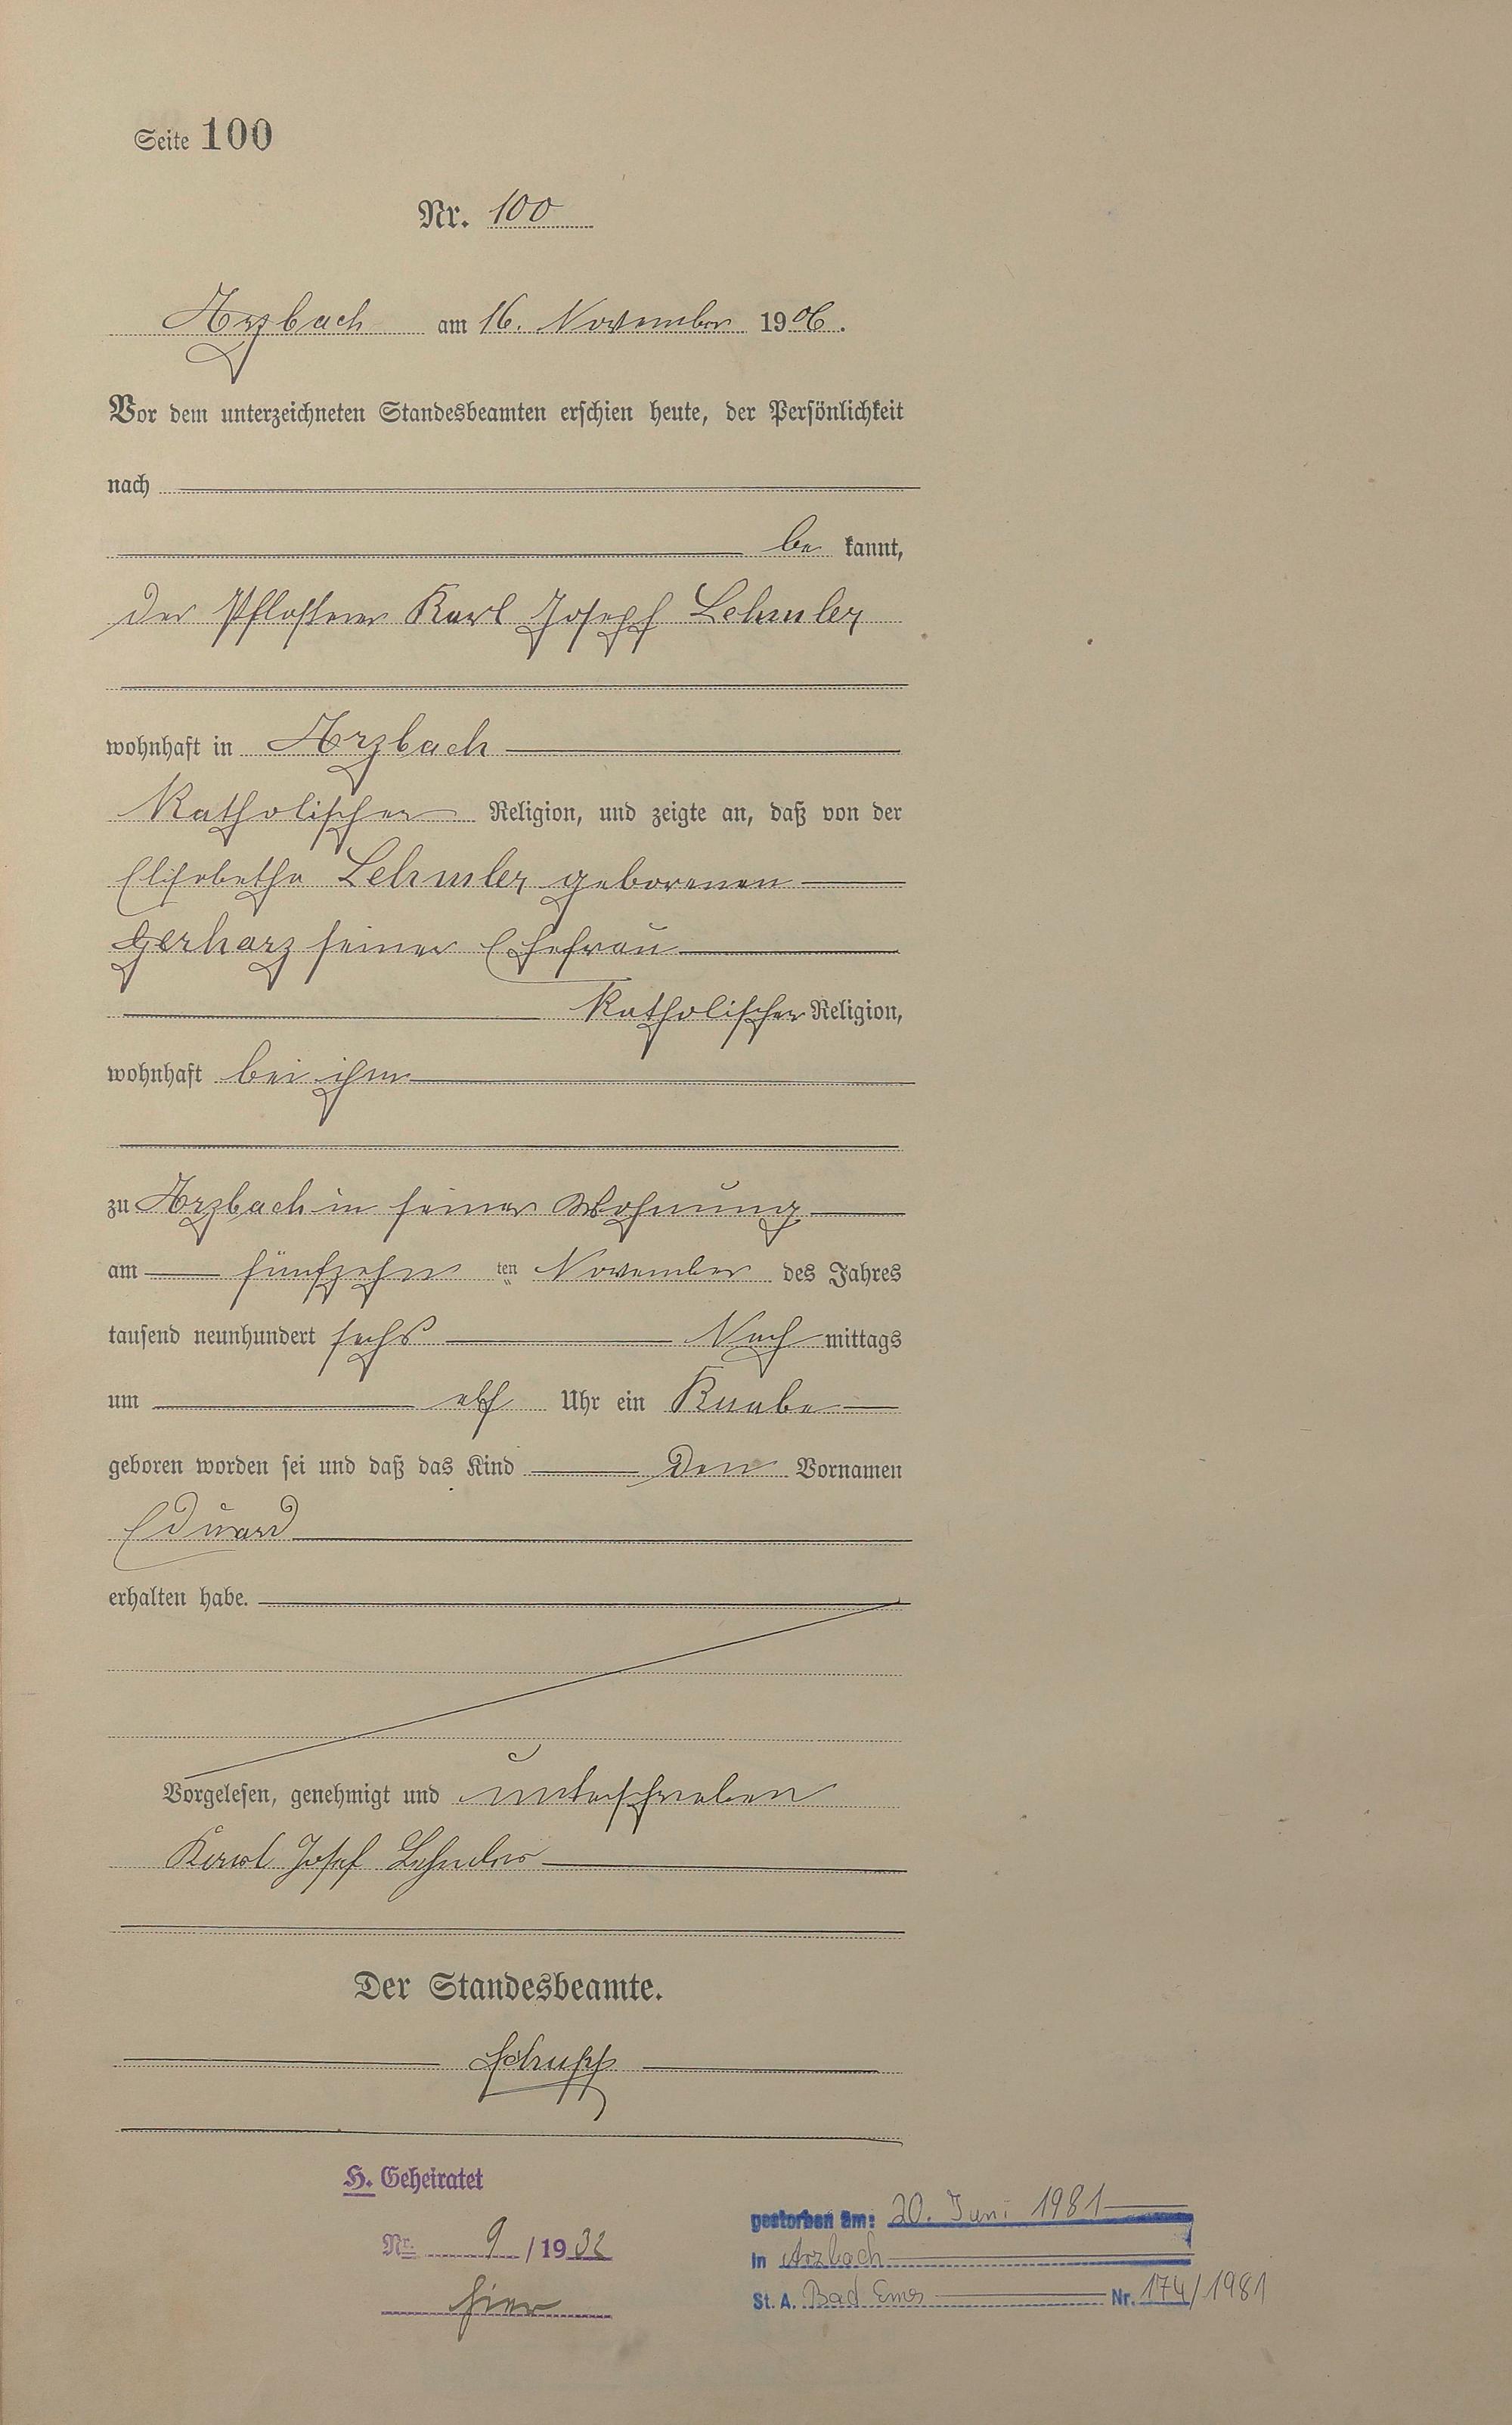 Seite 100
Nr. 100
Arzbach am 16. November 1906.
Vor dem unterzeichneten Standesbeamten erschien heute, der Persönlichkeit
nach
be kannt,
der Pflasterer Karl Joseph Lehmler
wohnhaft in Arzbach
Katholischer Religion, und zeigte an, daß von der
Elisabetha Lehmler geborenen
Gerharz seiner Ehefrau
Katholischer Religion,
wohnhaft bei ihm
zu Arzbach in seiner Wohnung
am fünfzehn ten November des Jahres
tausend neunhundert sechs Nach mittags
um elf Uhr ein Knabe
geboren worden sei und daß das Kind den Vornamen
Eduard
erhalten habe.
Vorgelesen, genehmigt und unterschrieben
Karl Josef Lehmler
Der Standesbeamte.
Schupp
H. Geheiratet
Nr. 9 / 1932
hier
gestorben am: 20. Juni 1981
in Arzbach
St. A. Bad Ems Nr. 174/1981